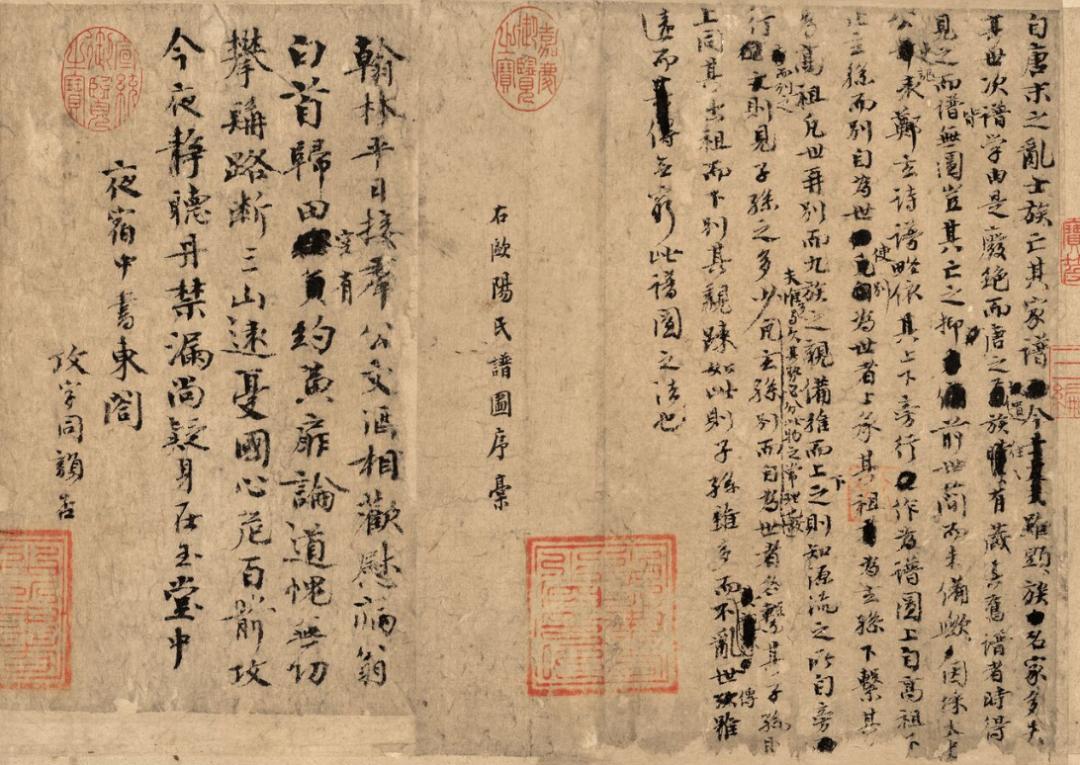 自唐末之亂士族亡其家譜今雖顯族名家多失
其世次譜学由是廢絶而唐之遺族往往有藏其舊譜者時得
見之而譜皆無圖豈其亡之抑前世簡而未備歟因採太史
公史記表鄭玄詩譜略依其上下旁行作為譜圖上自高祖下
止玄孫而別自為世使別為世者上承其祖為玄孫下繫其
孫為高祖凡世再別而九族之親備推而上下之則知源流之所自旁
行而列之則見子孫之多少夫惟多與久其勢必分此物之常理也故凡玄孫別而自為世者各繫其子孫則
上同其出祖而下別其親踈如此則子孫雖多而不亂世傳雖
遠而無窮此譜圖之法也
右歐陽氏譜圖序稾
嘉慶御覽之寶
翰林平日接群公文酒相歡慰病翁
白首歸田空有約黃扉論道愧無功
攀髯路斷三山遠憂國心危百箭攻
今夜靜聽丹禁漏尚疑身在玉堂中
夜宿中書東閣
攻字同韻否
宣統御覽之寶